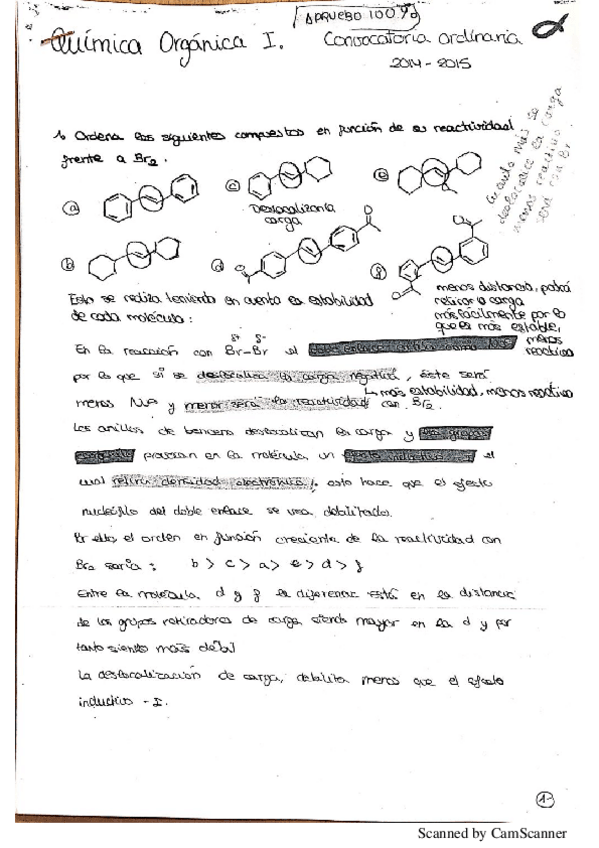 APRUEBO 100%
Química Orgánica I. Convocatoria ordinaria
2014-2015
1. Ordena los siguientes compuestos en función de su reactividad
frente a Br2.
Cuanto más se
deslocalice la carga
menos reactivo
será con Br
a
c
e
Deslocalizaría
carga
b
d
f
O
O
O
O
menos distancia, podrá
retirar la carga
más fácilmente por lo
que es más estable,
menos
reactivo
Esto se realiza teniendo en cuenta la estabilidad
de cada molécula:
δ+ δ-
En la reacción con Br-Br el
por lo que si se deslocaliza la carga negativa, éste será
↳ más estabilidad, menos reactivo
menos Nu y menor será la reactividad con Br2.
Los anillos de benceno deslocalizan la carga y
provocan en la molécula un el
cual retira densidad electrónica, esto hace que el efecto
nucleófilo del doble enlace se vea debilitado.
Por ello el orden en función creciente de la reactividad con
Br2 sería: b > c > a > e > d > f
Entre la molécula d y f la diferencia está en la distancia
de los grupos retiradores de carga, siendo mayor en la d y por
tanto siento más débil
La deslocalización de carga, debilita menos que el efecto
inductivo -I.
1
Scanned by CamScanner